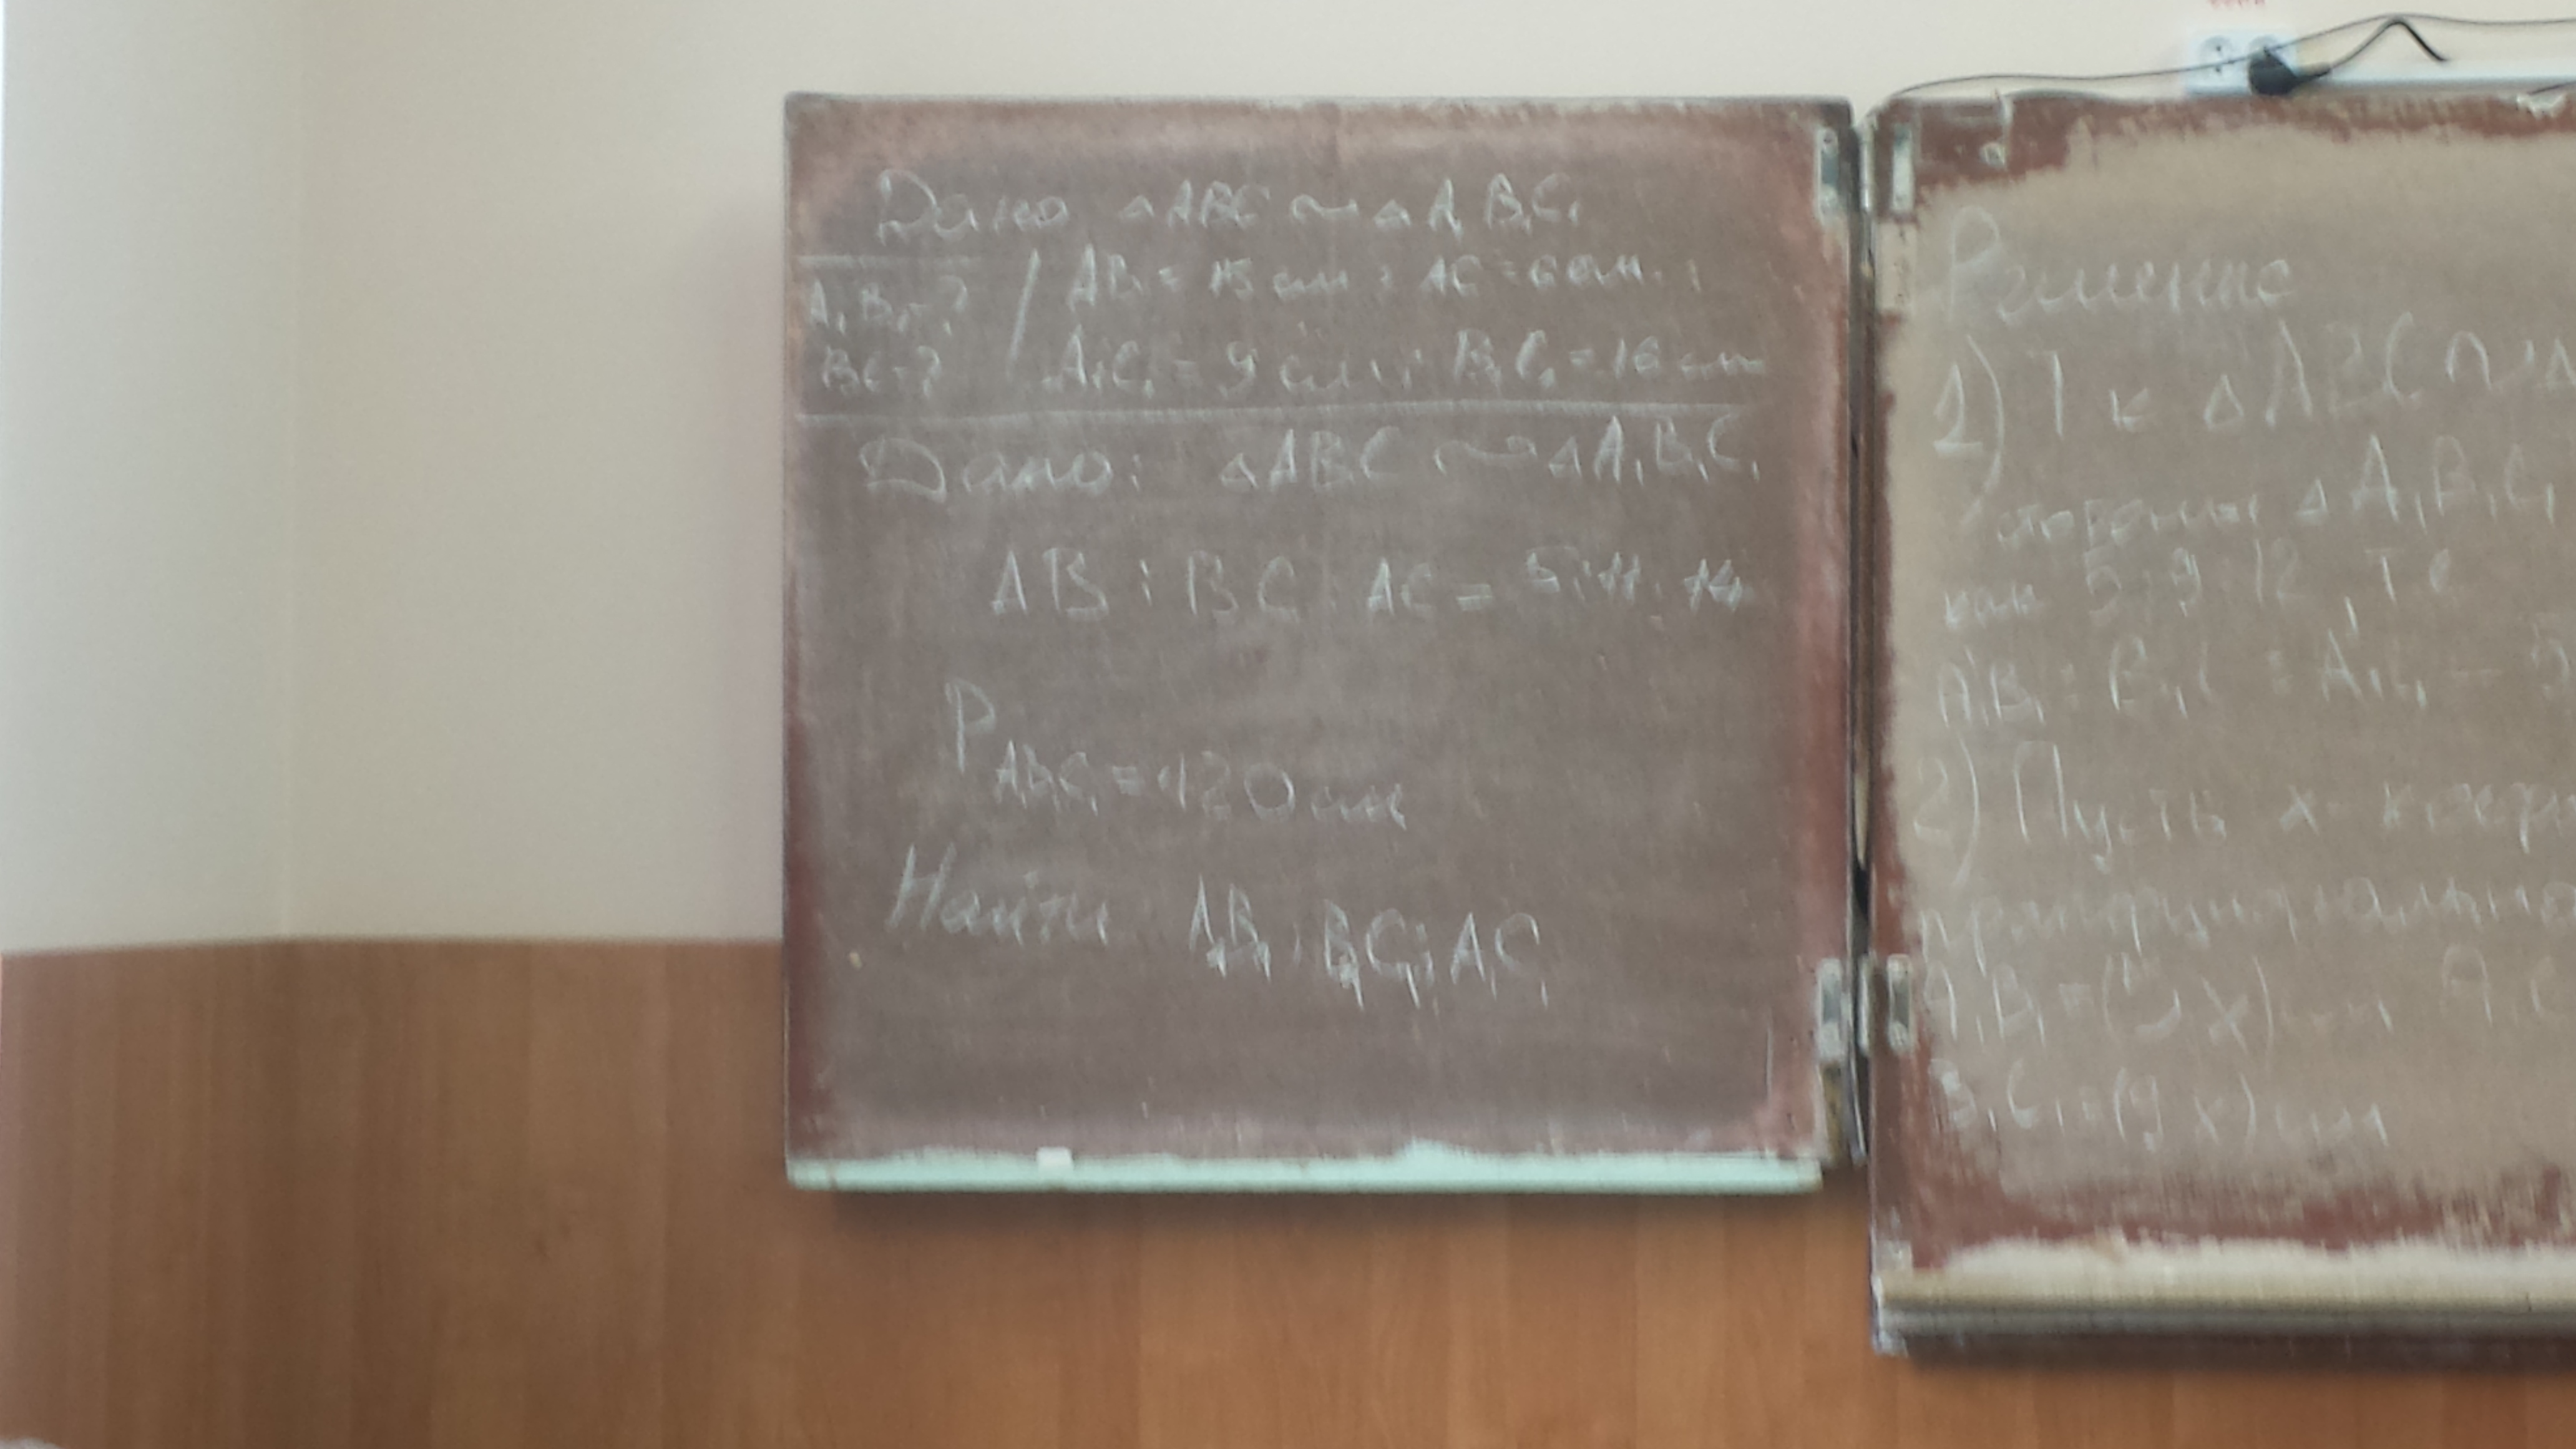 Дано △ABC ~ △A₁B₁C₁
AB = 15 см; AC = 6 см;
A₁B₁-?
A₁C₁ = 9 см; B₁C₁ = 16 см
BC-?
Дано: △ABC ~ △A₁B₁C₁
AB : BC : AC =
P A₁B₁C₁ = 120 см
Найти A₁B₁; B₁C₁; A₁C₁
Решение
1) Т к △ABC ~ △
стороны △A₁B₁C₁
как 5 : 9 : 12, т.е
A₁B₁ : B₁C : A₁C₁ = 5
2) Пусть x -
пропорционально
A₁B₁ = (5x) см A₁C
B₁C₁ = (9x) см